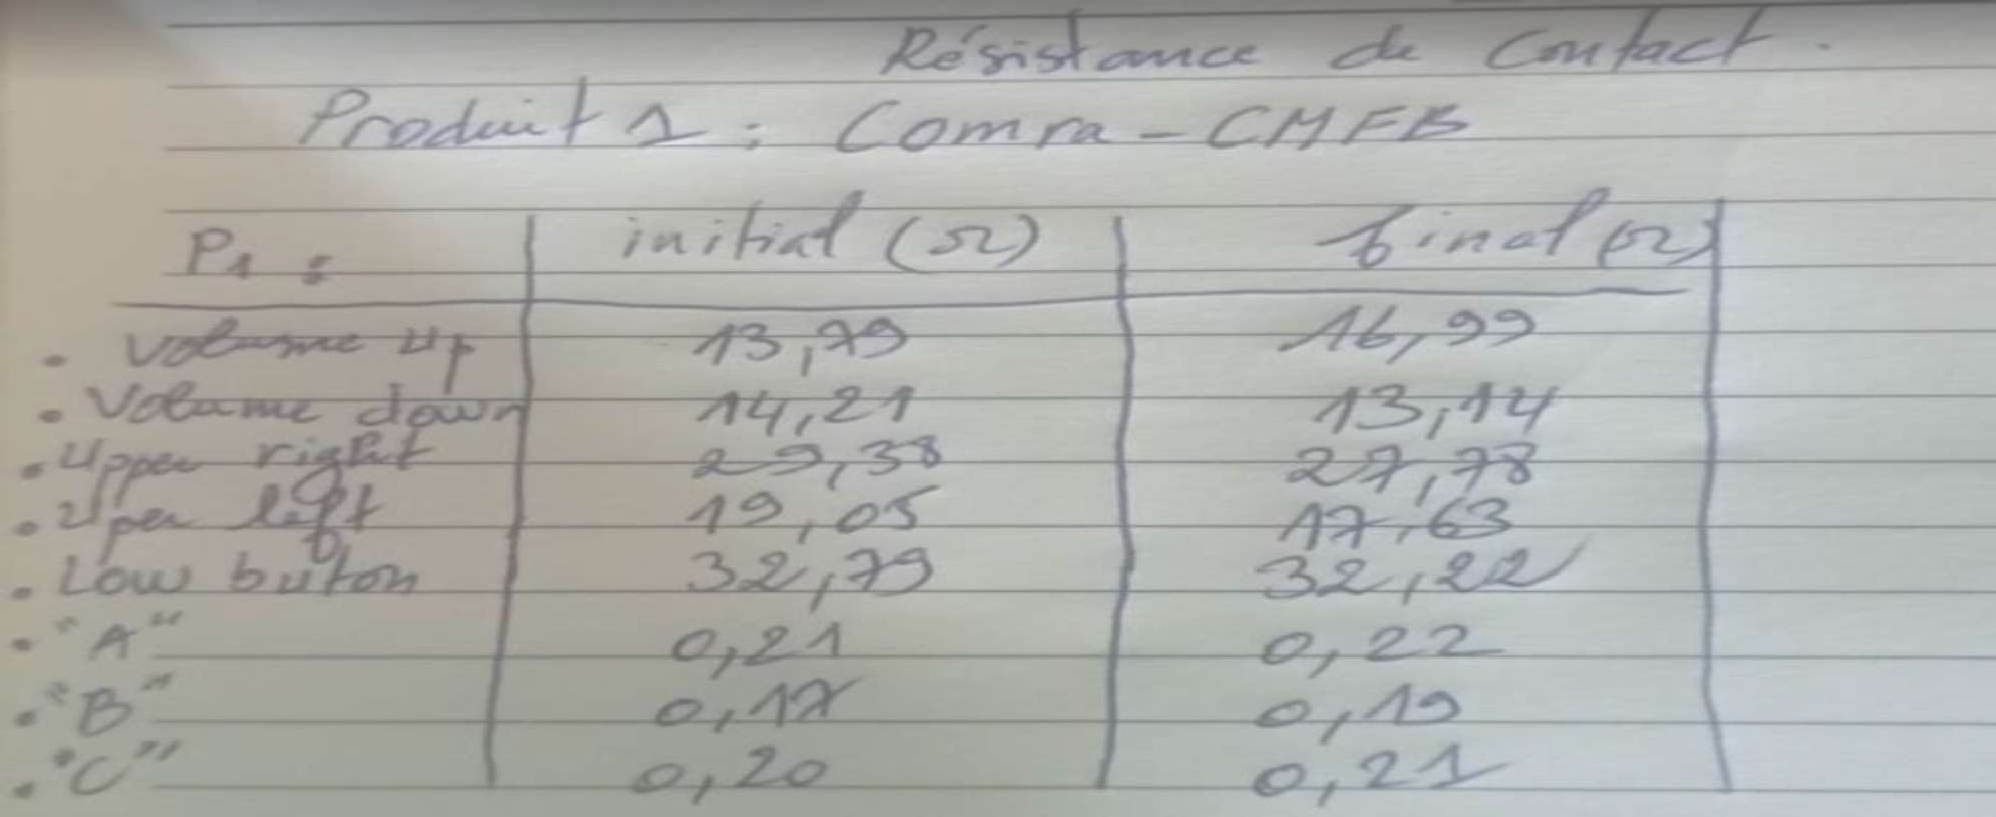 Résistance de Contact.
Produit 1 : Comra - CMFB
P1 : initial (Ω) final (Ω)
. Volume up 13,79 16,99
. Volume down 14,21 13,14
. Upper right 29,38 27,78
. Upper left 19,05 17,63
. Low buton 32,79 32,22
. "A" 0,21 0,22
. "B" 0,17 0,19
. "C" 0,20 0,21